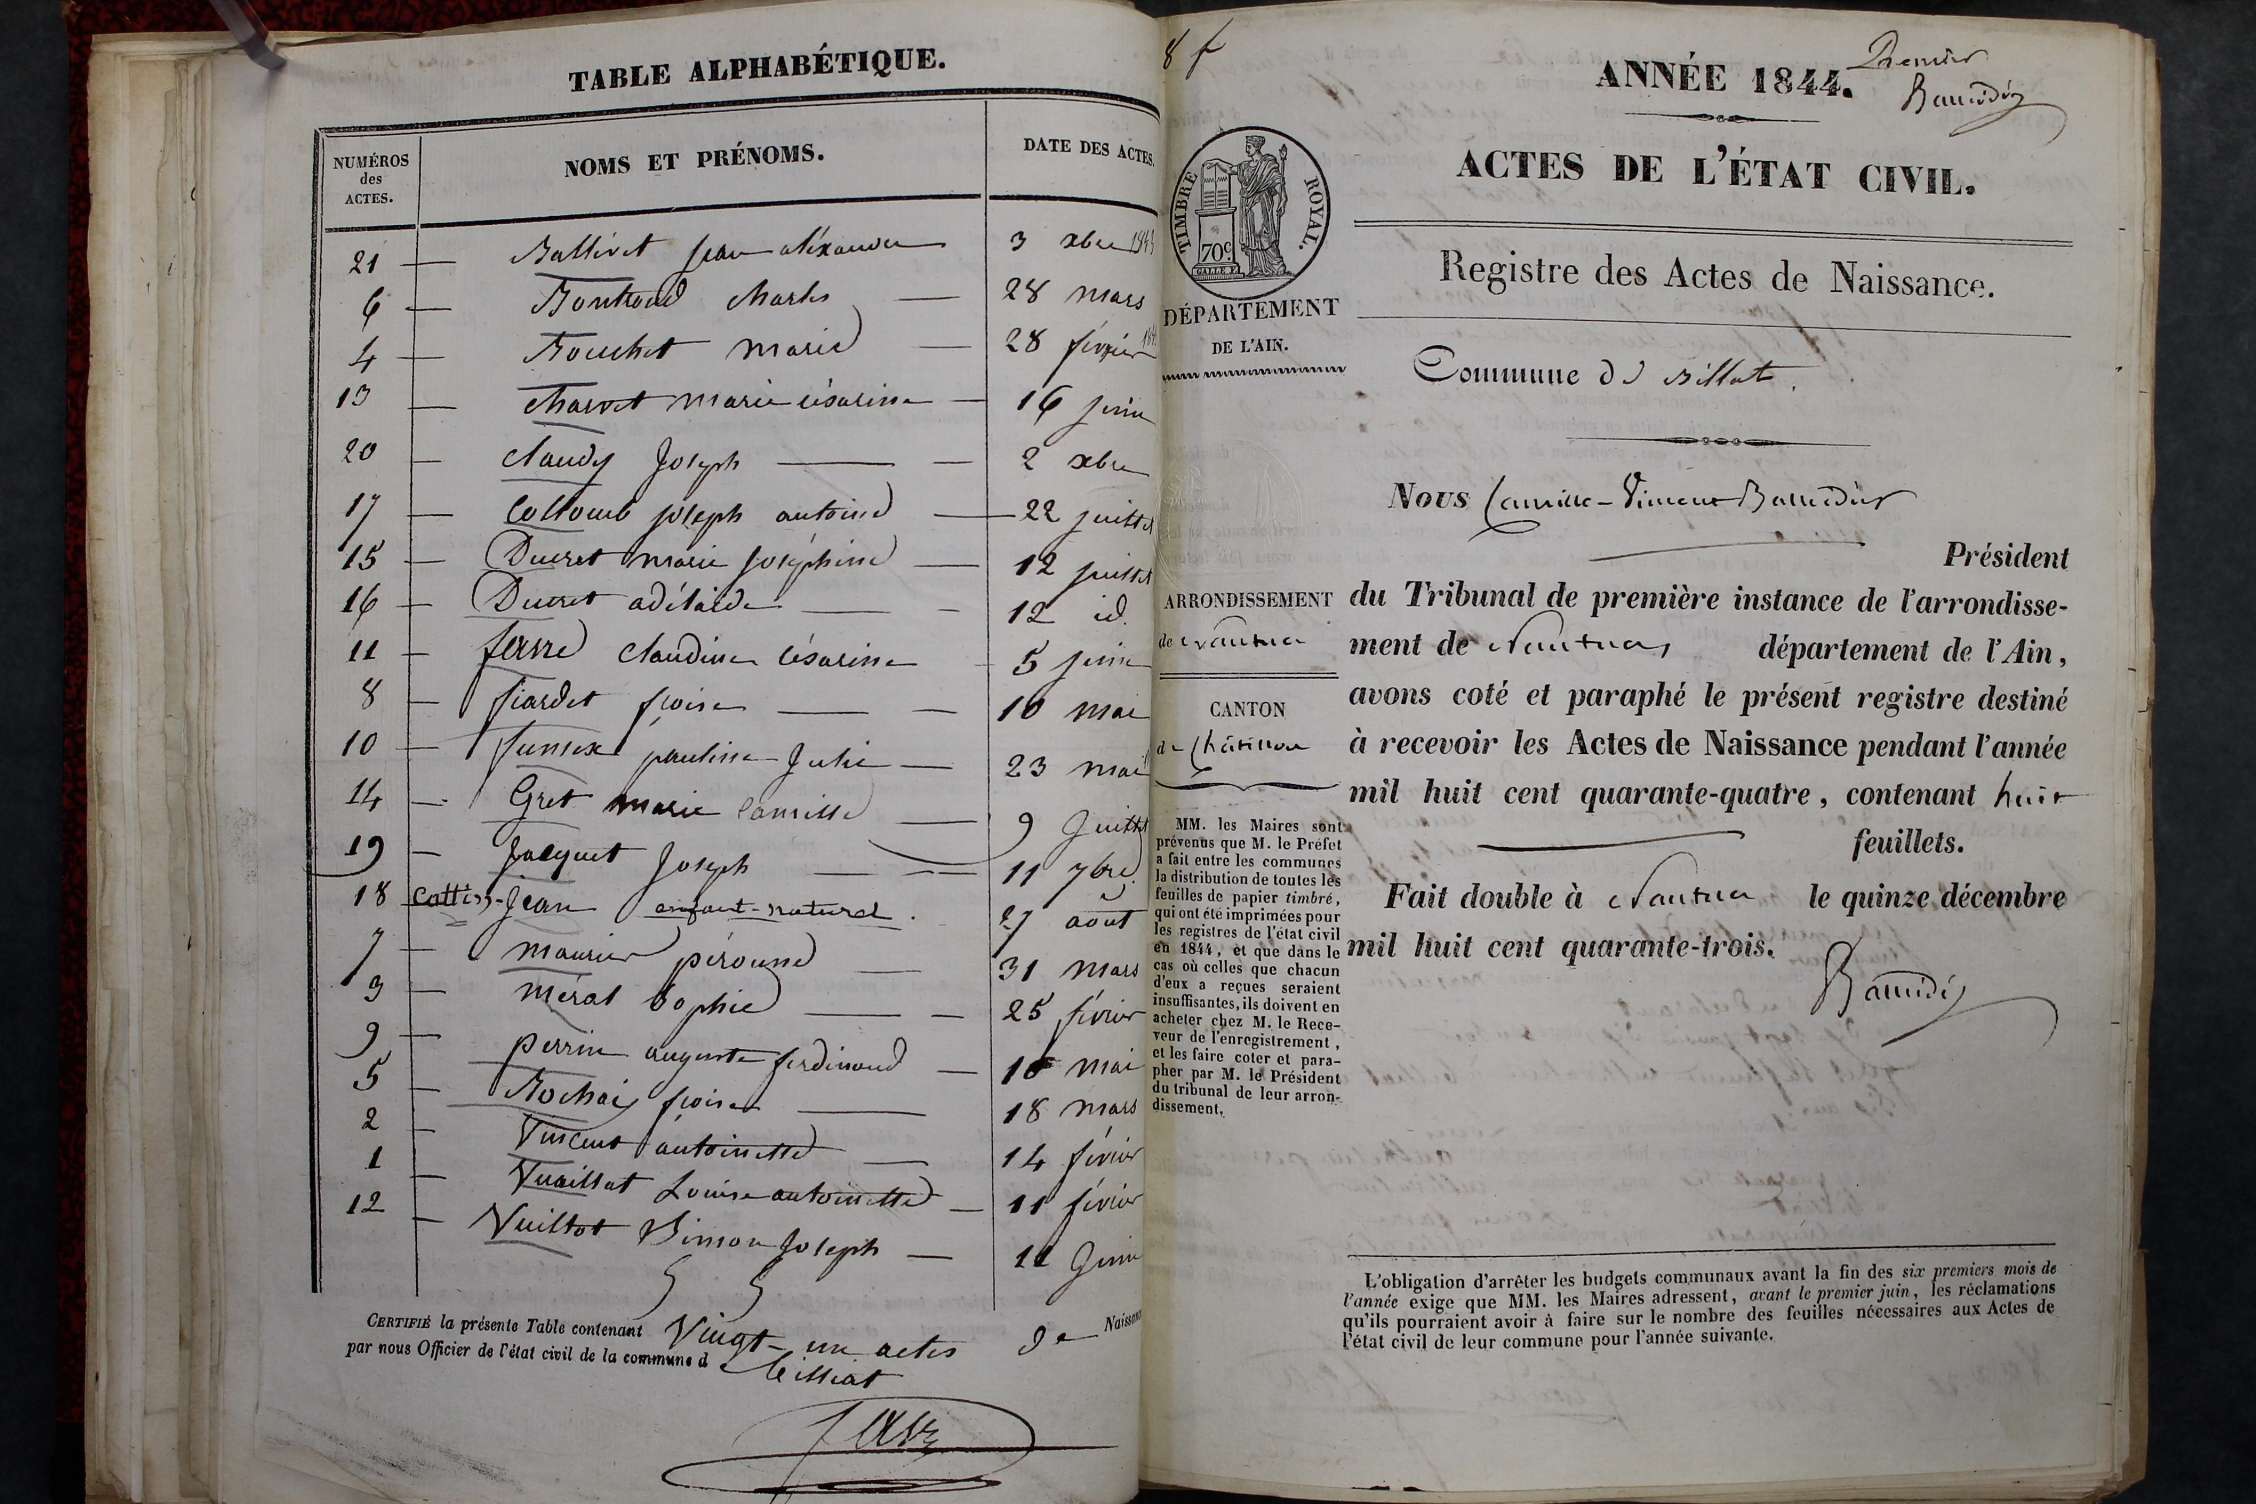 TABLE ALPHABÉTIQUE.
NUMÉROS
des
ACTES.
NOMS ET PRÉNOMS.
DATE DES ACTES.
21 — Ballivet jean aléxandre 3 xbre 1843
6 — Bontroud charles — 28 mars
4 — Bouchet marie — 28 février
13 — charvet marie césarine — 16 juin
20 — claudy Joseph — 2 xbre
17 — Collomb joseph antoine — 22 juillet
15 — Ducret marie joséphine — 12 juillet
16 — Ducret adélaide — 12 id.
11 — favre claudine césarine — 5 juin
8 — fiardet froise — 10 mai
10 — pauline Julie — 23 mai
14 — Gret marie Camille — 9 Juillet
19 — Jacquet Joseph — 11 7bre
18 Jean enfant-naturel. 27 août
7 — maurier péroune — 31 mars
3 — méral Sophie — 25 février
9 — perrin auguste ferdinand — 10 mai
5 — Rochaix froise — 18 mars
2 — Vincent antoinette — 14 février
1 — Vuaillat Louise antoinette — 11 février
12 — Vuillot Simon Joseph — 11 Juin
CERTIFIÉ la présente Table contenant Vingt-un actes de Naissance
par nous Officier de l'état civil de la commune d
Billiat
favre
8 f
ANNÉE 1844.
Premier
ACTES DE L'ÉTAT CIVIL.
TIMBRE ROYAL.
70c
DÉPARTEMENT
DE L'AIN.
Registre des Actes de Naissance.
Commune de Billat.
Nous Camille-Vincent Baudin
Président
ARRONDISSEMENT
de Nantua
CANTON
de Châtillon
du Tribunal de première instance de l'arrondisse-
ment de Nantua, département de l'Ain,
avons coté et paraphé le présent registre destiné
à recevoir les Actes de Naissance pendant l'année
mil huit cent quarante-quatre, contenant huit
feuillets.
Fait double à Nantua le quinze décembre
mil huit cent quarante-trois.
MM. les Maires sont
prévenus que M. le Préfet
a fait entre les communes
la distribution de toutes les
feuilles de papier timbré,
qui ont été imprimées pour
les registres de l'état civil
en 1844, et que dans le
cas où celles que chacun
d'eux a reçues seraient
insuffisantes, ils doivent en
acheter chez M. le Rece-
veur de l'enregistrement,
et les faire coter et para-
pher par M. le Président
du tribunal de leur arron-
dissement.
L'obligation d'arrêter les budgets communaux avant la fin des six premiers mois de
l'année exige que MM. les Maires adressent, avant le premier juin, les réclamations
qu'ils pourraient avoir à faire sur le nombre des feuilles nécessaires aux Actes de
l'état civil de leur commune pour l'année suivante.